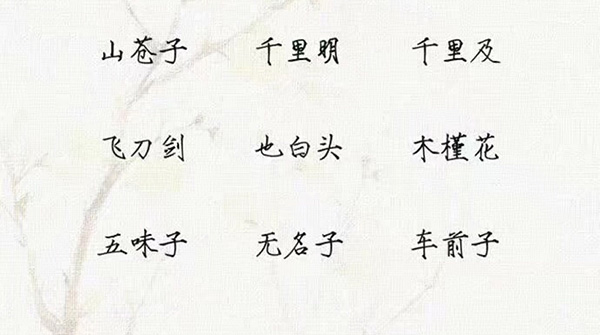 山苍子 千里明 千里及
飞刀剑 也白头 木槿花
五味子 无名子 车前子